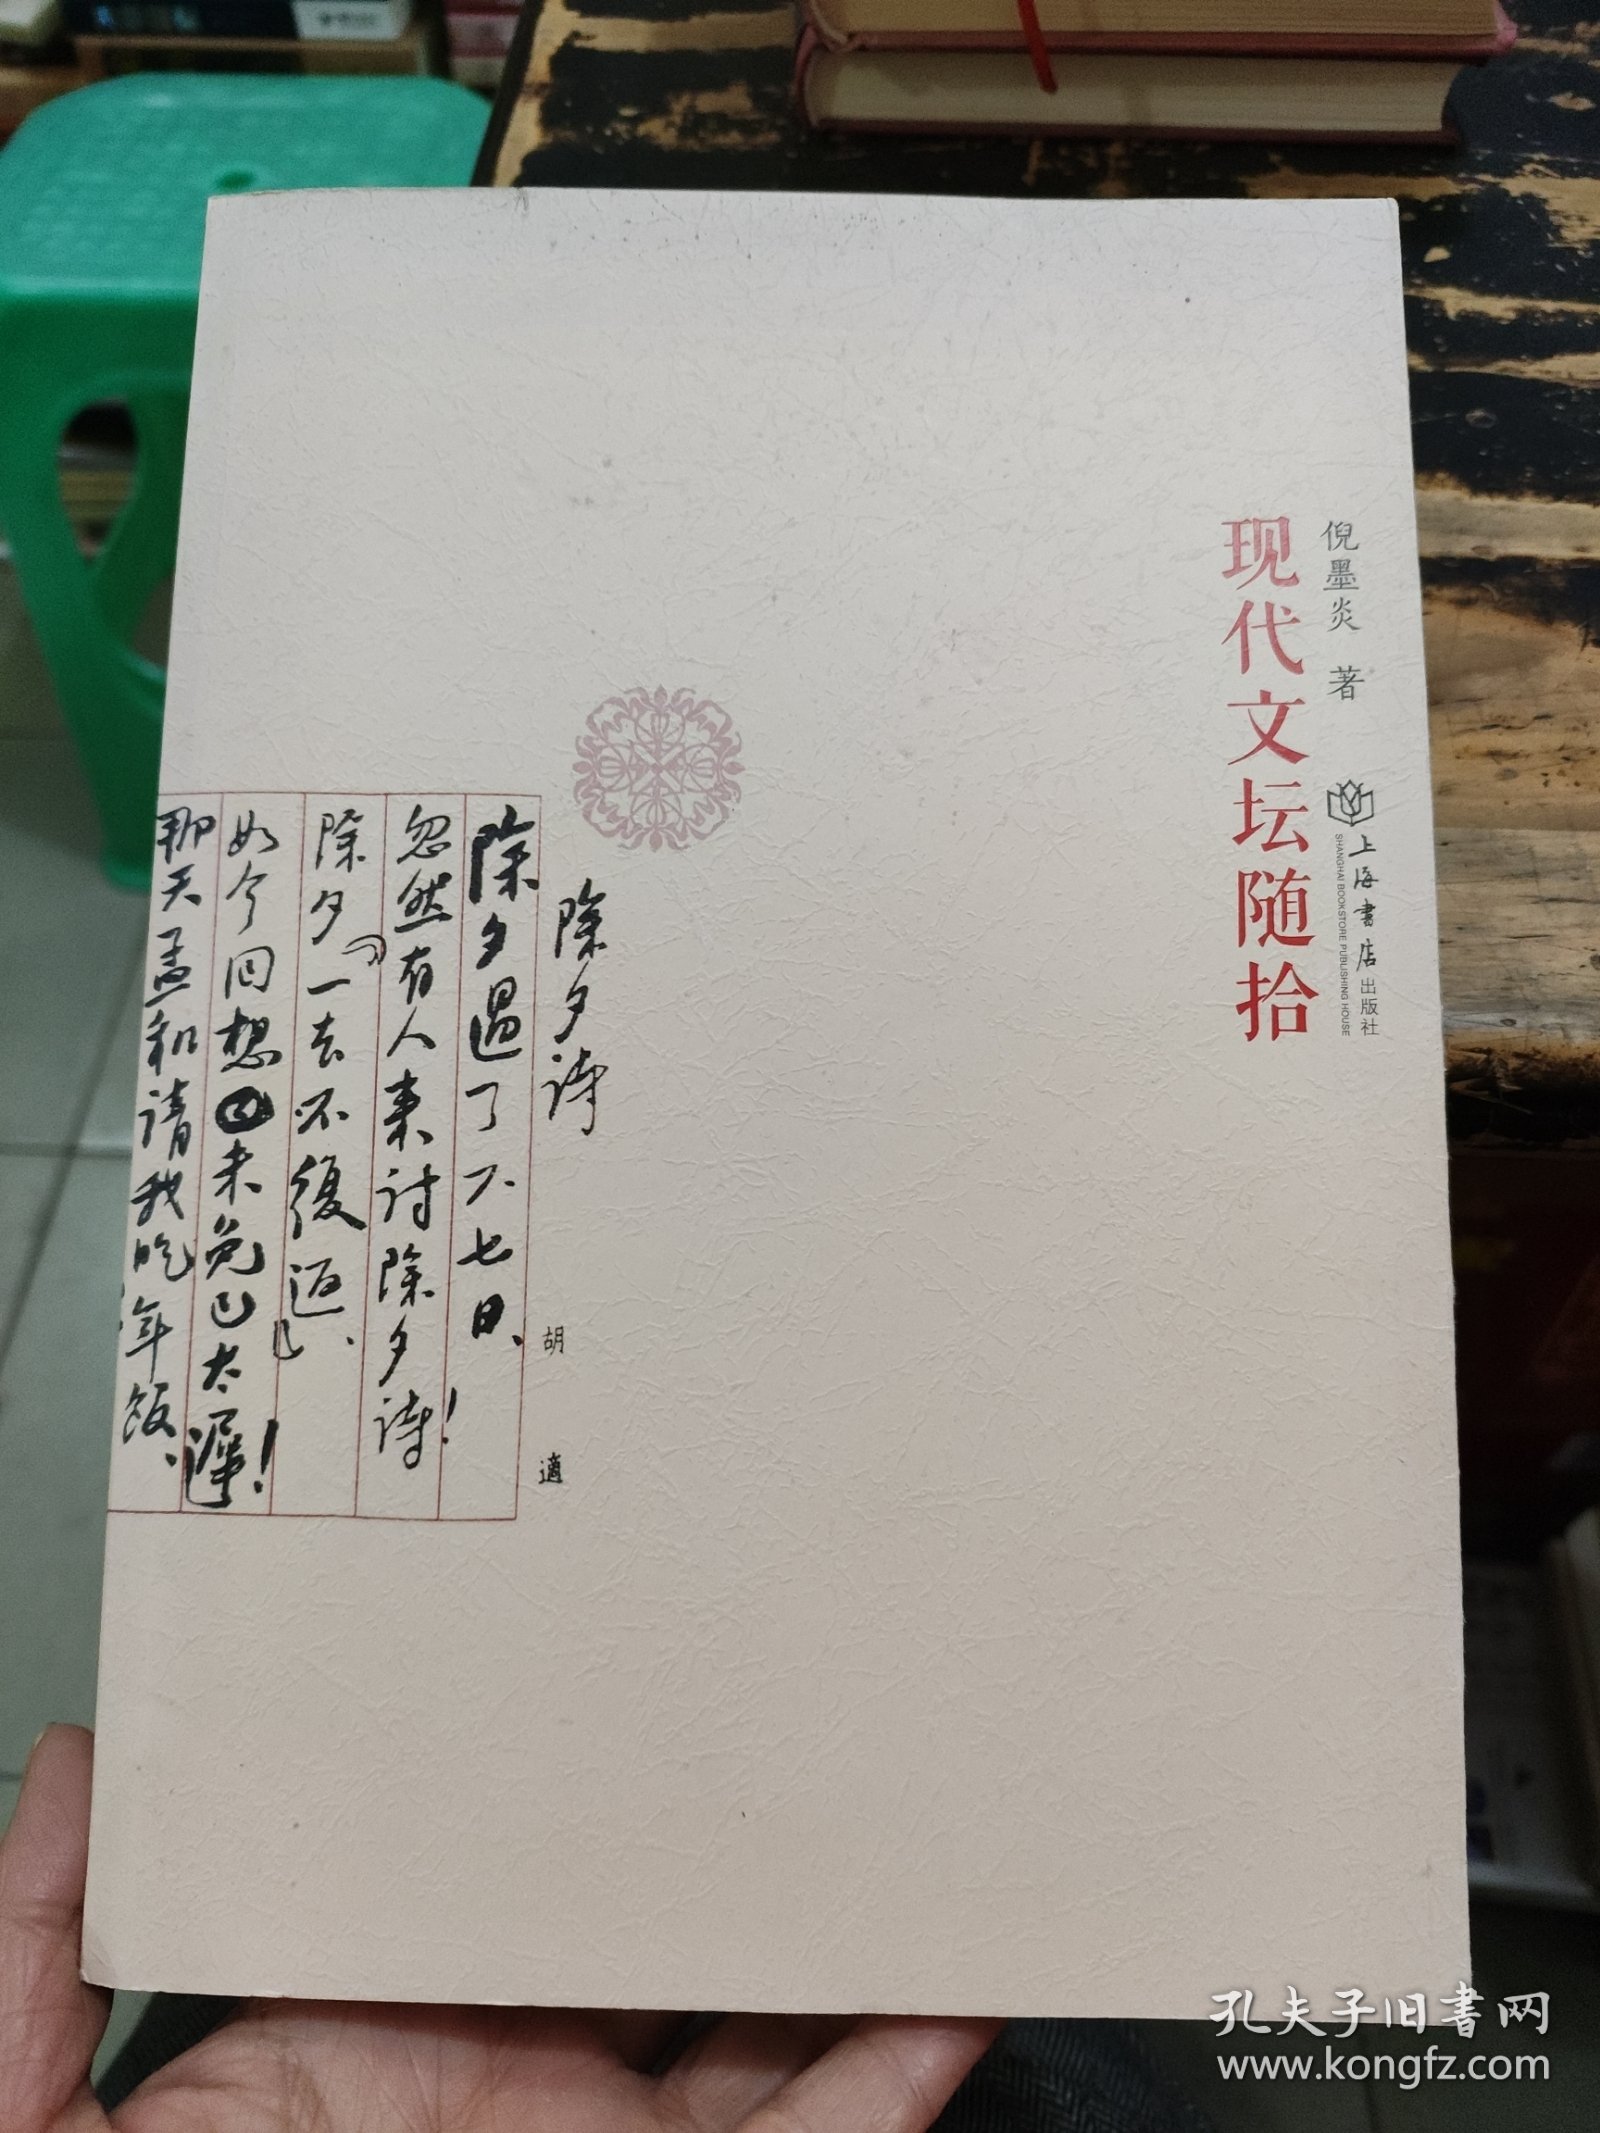 倪墨炎 著
现代文坛随拾
上海书店出版社
SHANGHAI BOOKSTORE PUBLISHING HOUSE
除夕诗
胡 適
除夕過了六七日、
忽然有人来討除夕诗！
除夕「一去不復返」、
如今回想未免已太遲！
那天孟和請我吃年飯、
孔夫子旧书网
www.kongfz.com